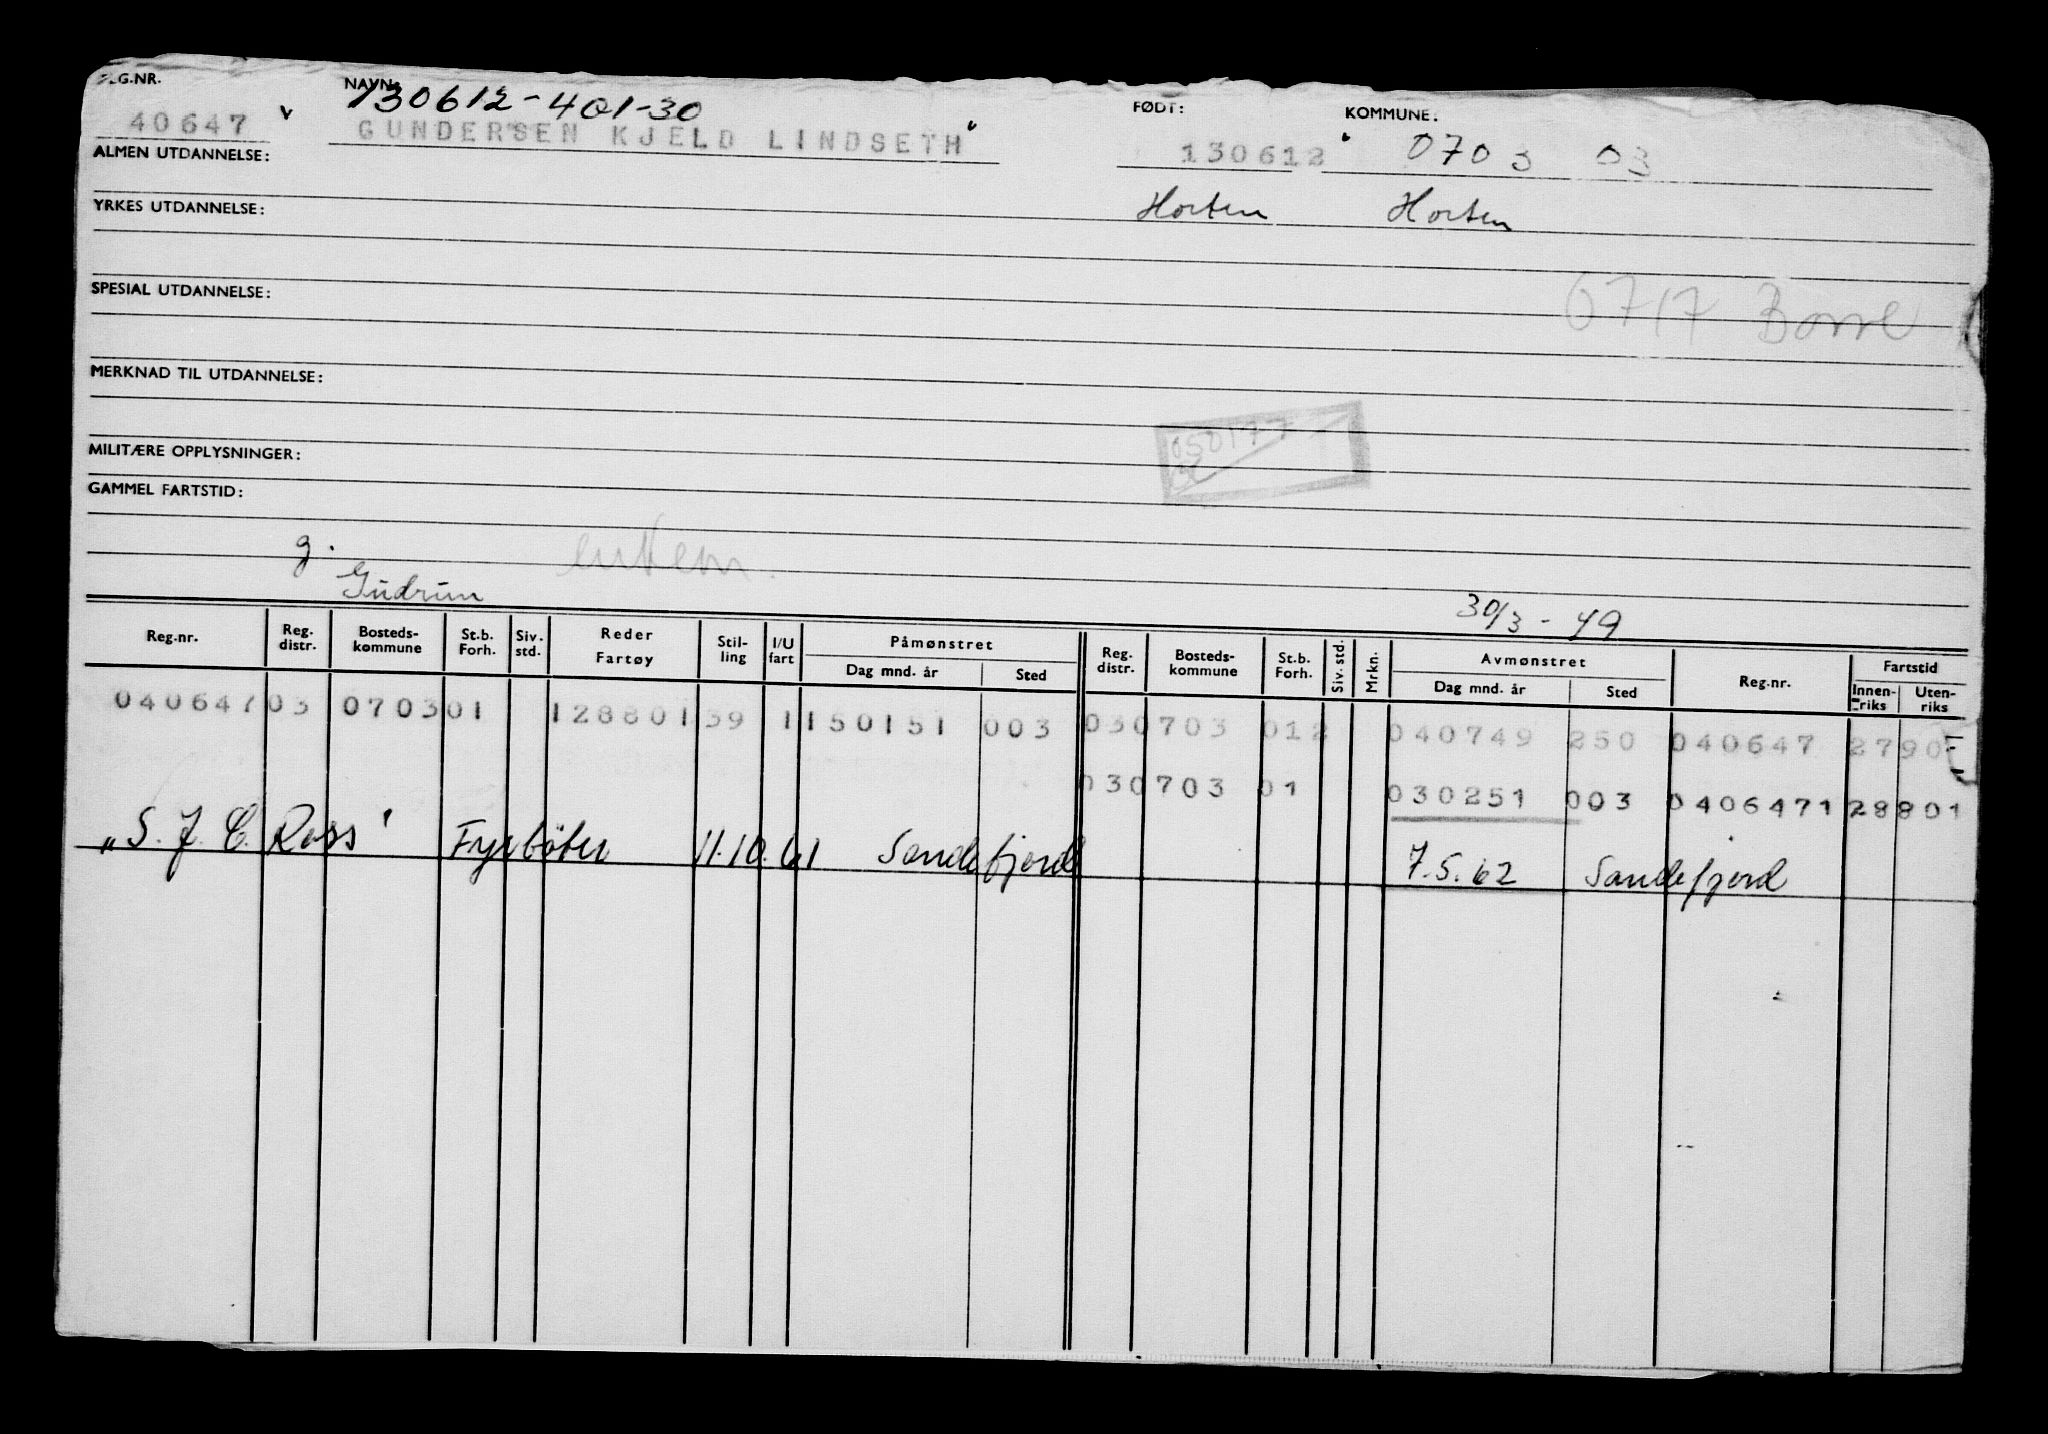 G.NR. NAVN: FØDT: KOMMUNE:
130612-401-30
40647 v GUNDERSEN KJELD LINDSETH 130612 0703 03
ALMEN UTDANNELSE:
Horten Horten
YRKES UTDANNELSE:
SPESIAL UTDANNELSE:
0717 Borre
MERKNAD TIL UTDANNELSE:
050177
MILITÆRE OPPLYSNINGER:
GAMMEL FARTSTID:
g. enkem.
Gudrun
30/3-49
Reg.nr. Reg. distr. Bosteds-kommune St.b. Forh. Siv. std. Reder Fartøy Stil-ling I/U fart Påmønstret Dag mnd. år Sted Reg. distr. Bosteds-kommune St.b. Forh. Siv. std. Mrkn. Avmønstret Dag mnd. år Sted Reg.nr. Fartstid Innen-riks Uten-riks
040647 03 0703 01 128801 39 1 150151 003 030703 012 040749 250 040647 2790
030703 01 030251 003 0406471 28801
"S. J. C. Ross" Fyrbøter 11.10.61 Sandefjord 7.5.62 Sandefjord